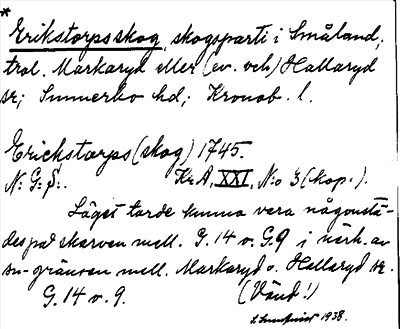 *
Erikstorpsskog, skogsparti i Småland;
trol. Markaryd eller (ev. och) Hallaryd
sr; Sunnerbo hd; Kronob. l.
Erickstorps (skog) 1745.
N: G: S:. KrA, XXI, N:o 3 (kop.).
Läget torde kunna vera någonstä-
des på skarven mell. G. 14 o. G. 9 i närh. av
sn-gränsen mell. Markaryd o. Hallaryd sr.
G. 14 o. 9. (Vänd!)
1938.